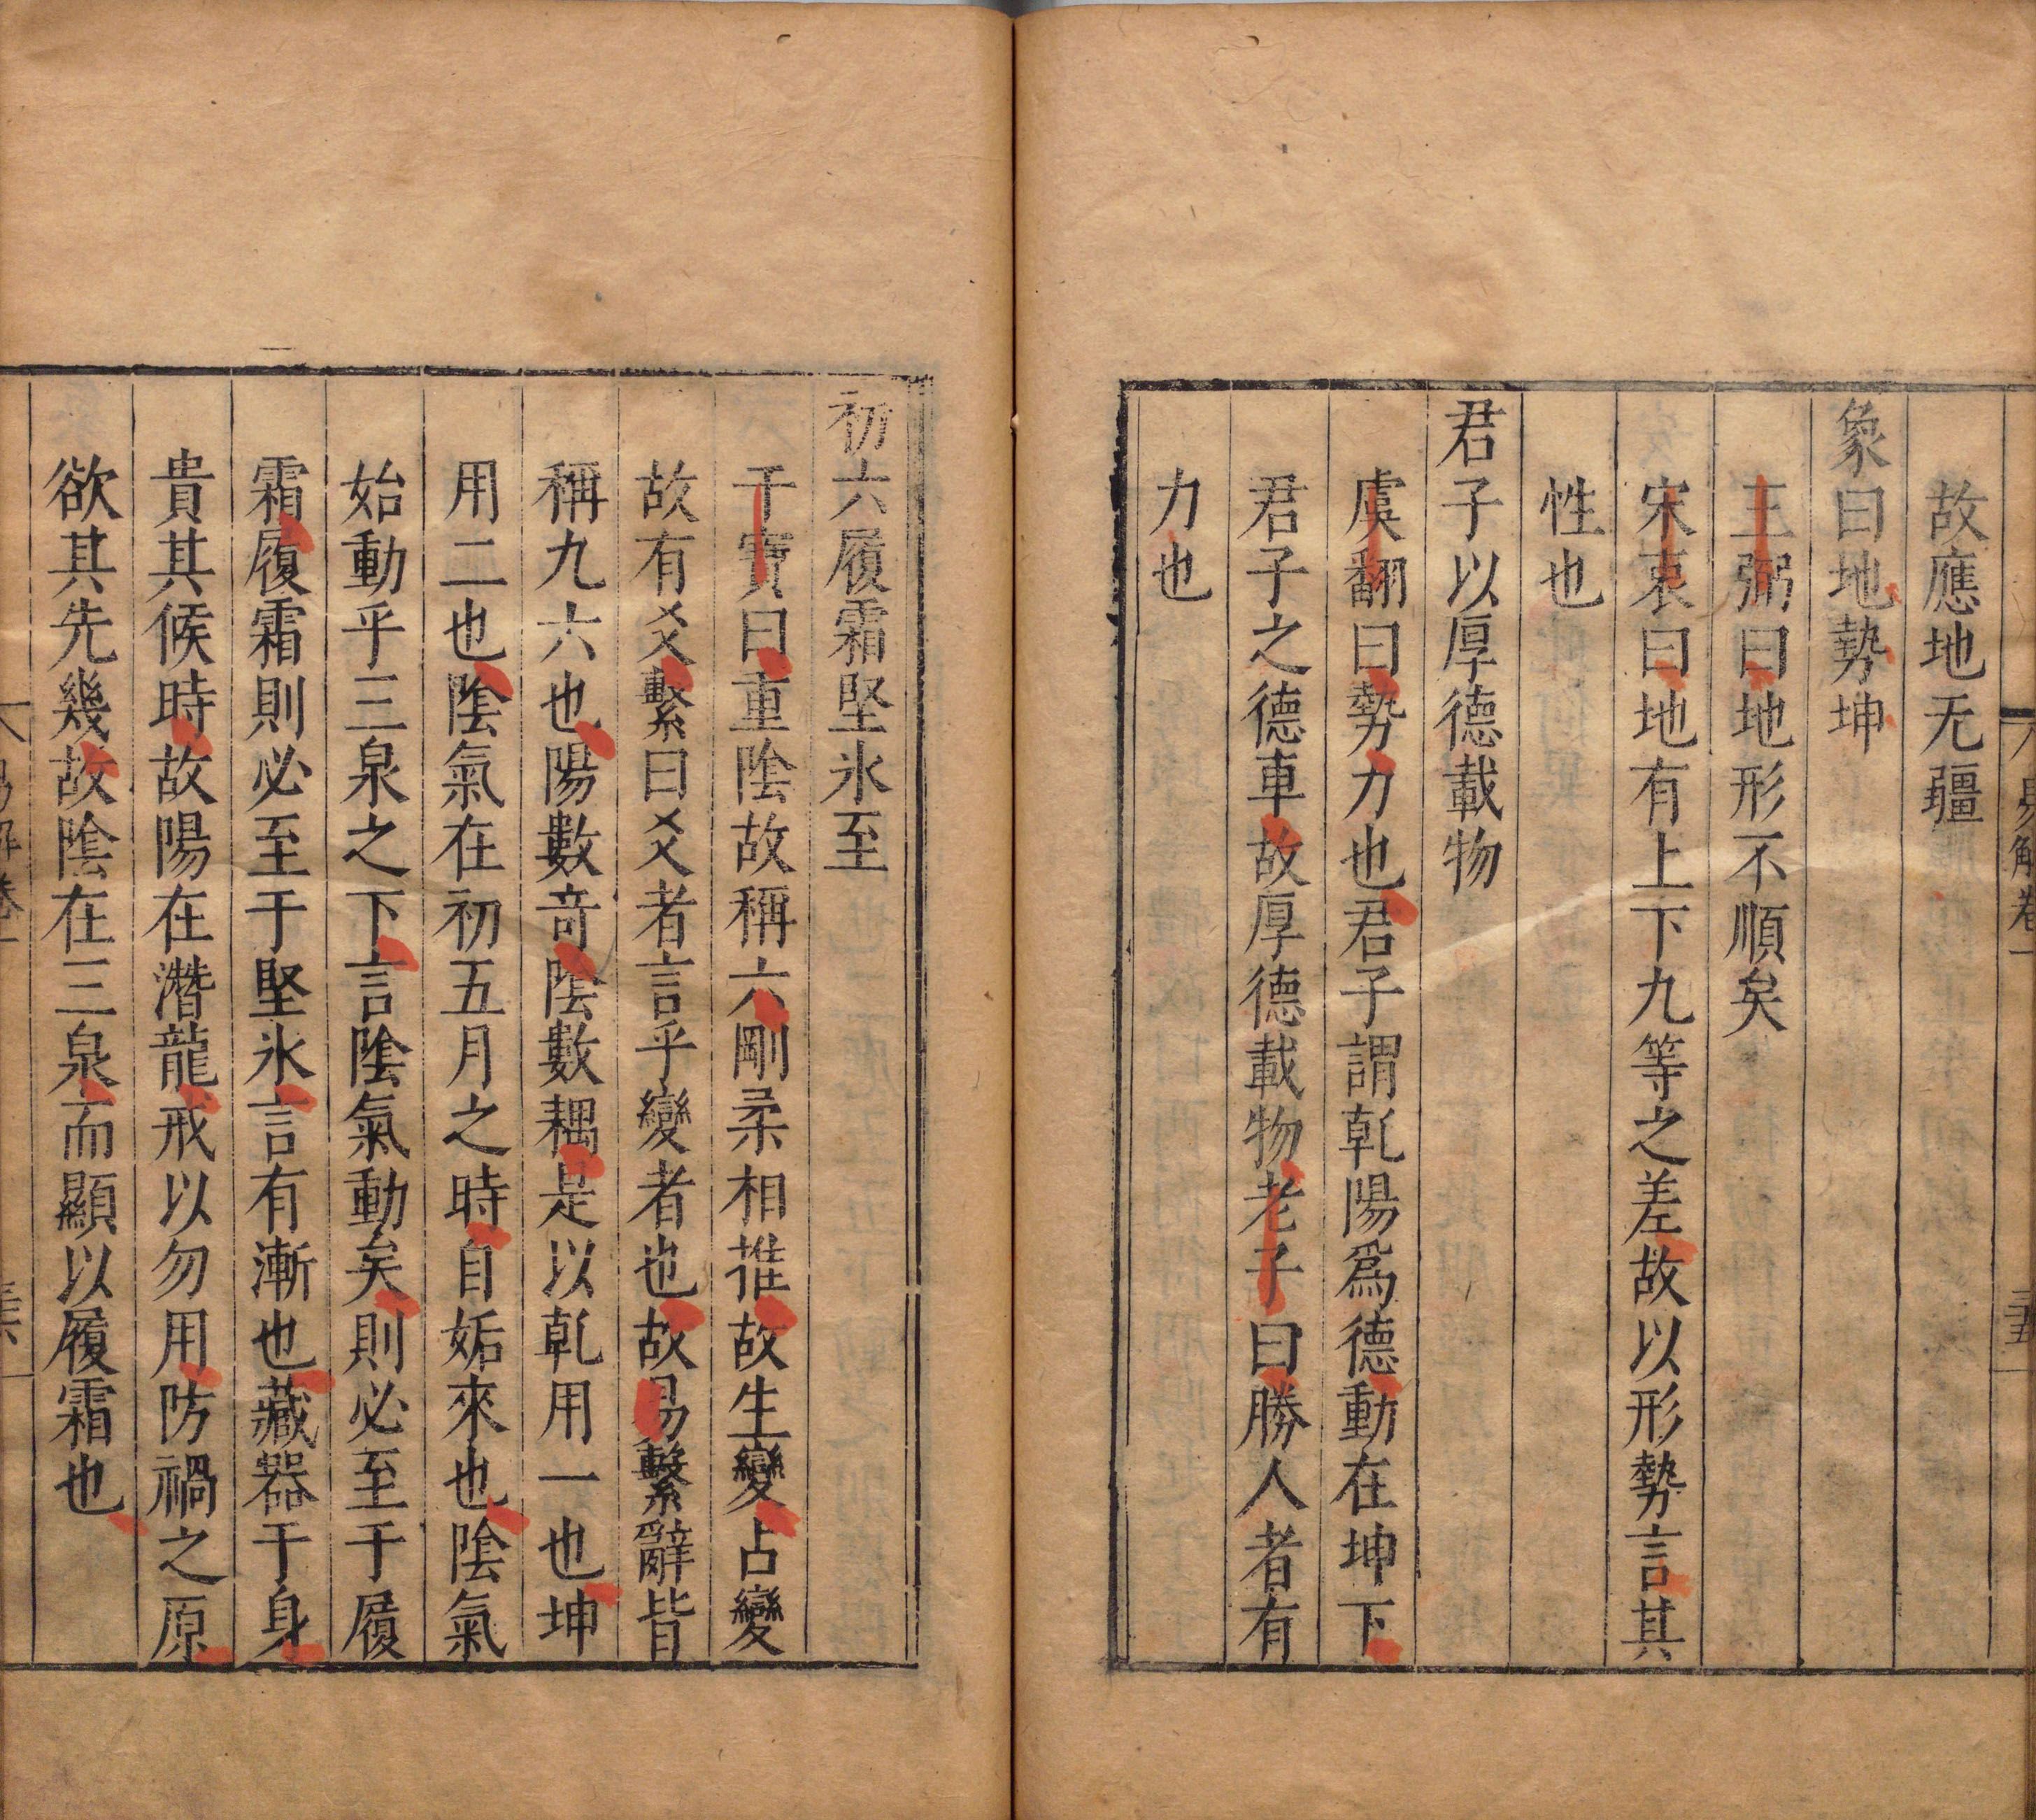 故應地无疆
象曰地勢坤
王弼曰地形不順矣
宋衷曰地有上下九等之差故以形勢言其
性也
君子以厚德載物
虞翻曰勢力也君子謂乾陽爲德動在坤下
君子之德車故厚德載物老子曰勝人者有
力也
易解卷一
初六履霜堅氷至
干寶曰重陰故稱六剛柔相推故生變占變
故有爻繫曰爻者言乎變者也故易繫辭皆
稱九六也陽數竒陰數耦是以乾用一也坤
用二也陰氣在初五月之時自姤來也陰氣
始動乎三泉之下言陰氣動矣則必至于履
霜履霜則必至于堅氷言有漸也藏器于身
貴其俟時故陽在潛龍戒以勿用防禍之原
欲其先幾故陰在三泉而顯以履霜也